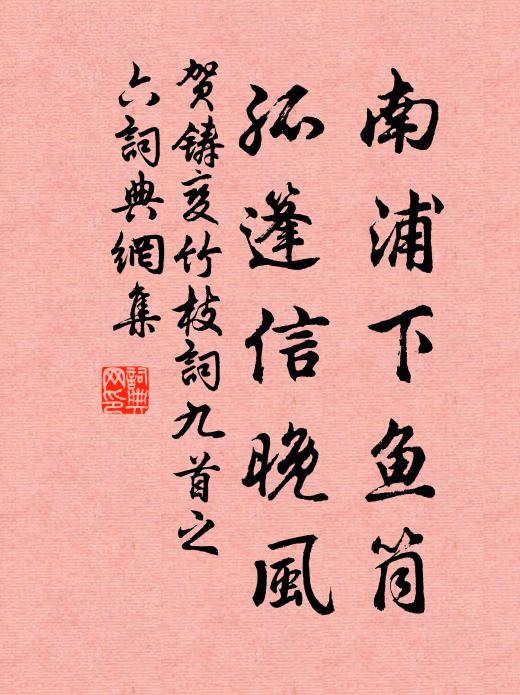 南浦下鱼筒
孤篷信晚風
贺鑄变竹枝詞九首之
六詞典網集
詞典网印